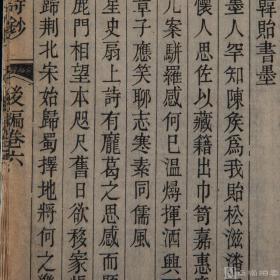 韓貽書墨
墨人罕知陳矦爲我貽松滋潘
懷人思佐以藏籍出巾笥嘉惠
几案駢羅感何已溫燖揮洒興
章子應笑聊志寒素同儒風
星史扇上詩有龐葛之思感而題
鹿門相望本咫尺舊日欲移家
歸荆北宋始歸蜀擇地將何之
詩鈔
後編卷六